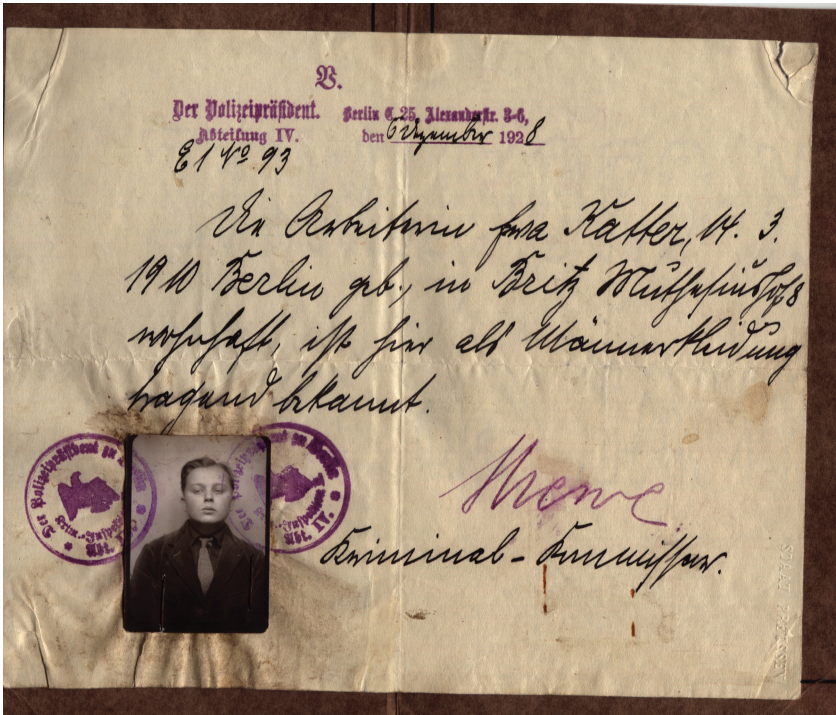 V.
Der Polizeipräsident.
Abteilung IV.
E 1 No 93
Berlin C. 25, Alexanderstr. 3-6,
den 6 Dezember 1928
Die Arbeiterin Eva Katter, 14. 3.
1910 Berlin geb., in Britz Muthesiushof 8
wohnhaft, ist hier als Männerkleidung
tragend bekannt.
Kriminal-Kommissar.
Der Polizeipräsident zu Berlin
Abt. IV.
Der Polizeipräsident zu Berlin
Abt. IV.